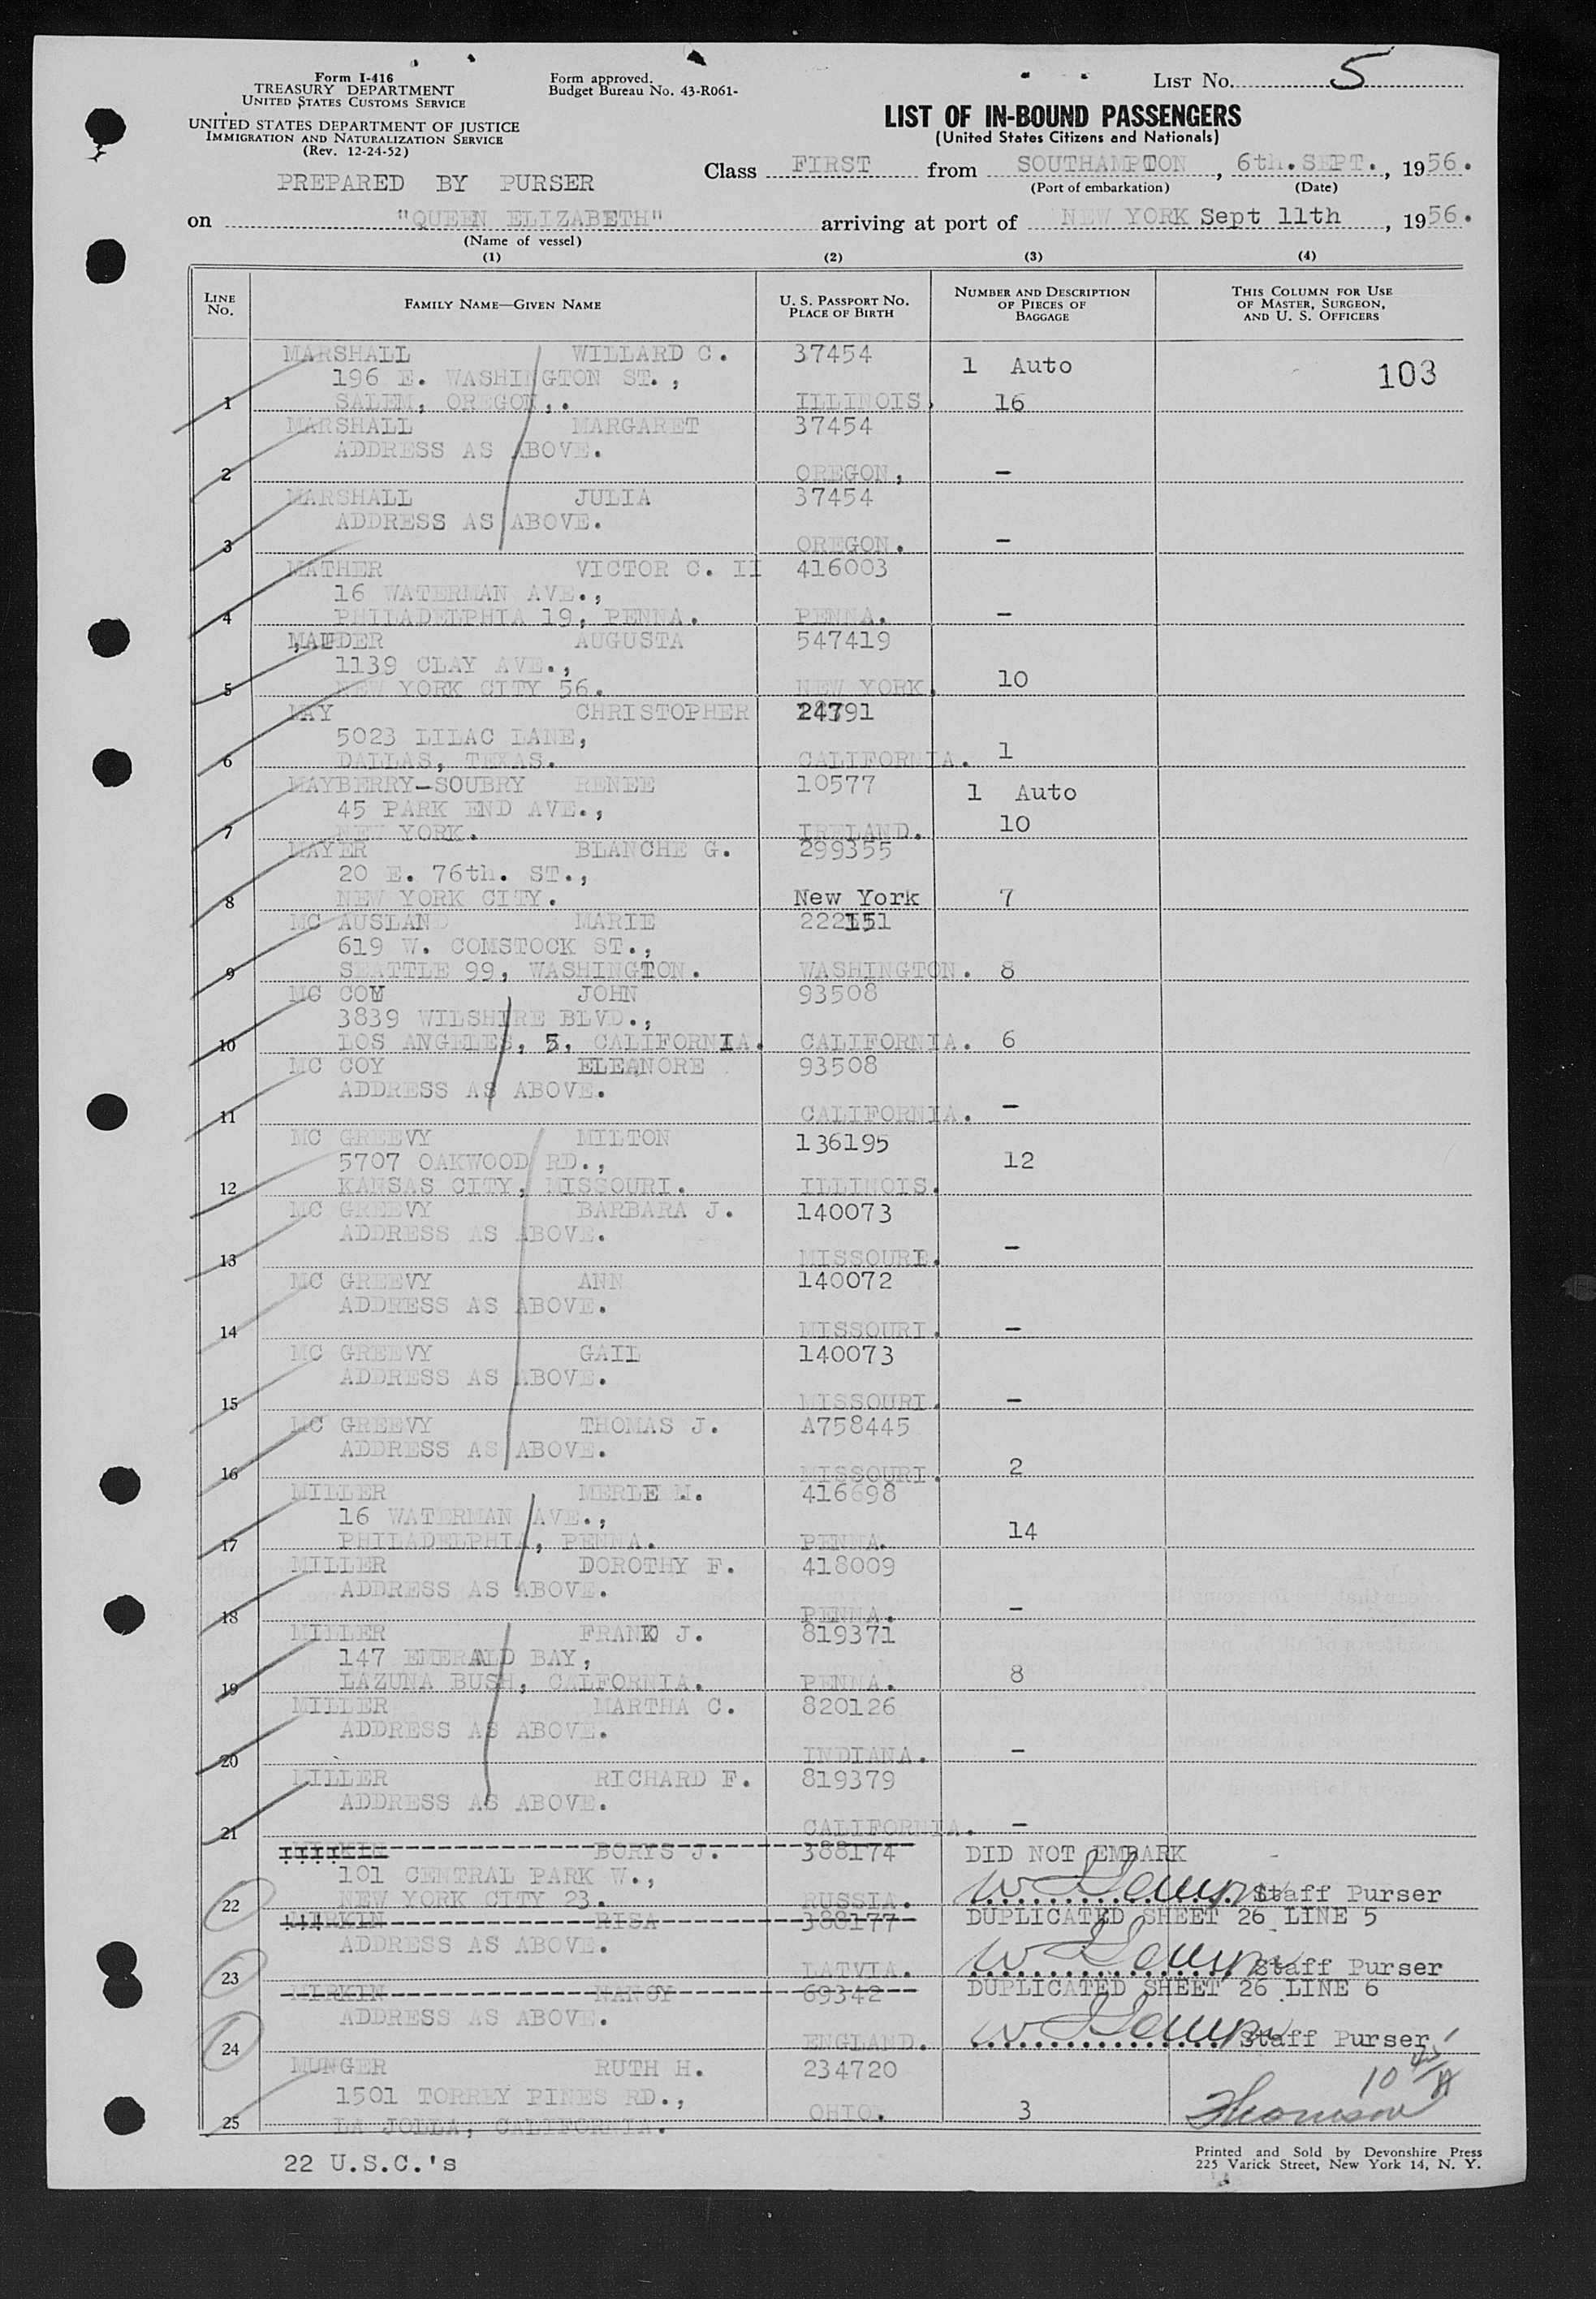 Form I-416
TREASURY DEPARTMENT
UNITED STATES CUSTOMS SERVICE
UNITED STATES DEPARTMENT OF JUSTICE
IMMIGRATION AND NATURALIZATION SERVICE
(Rev. 12-24-52)
Form approved.
Budget Bureau No. 43-R061-
LIST NO. 5
LIST OF IN-BOUND PASSENGERS
(United States Citizens and Nationals)
PREPARED BY PURSER
Class FIRST from SOUTHAMPTON, 6th.SEPT., 1956.
(Port of embarkation) (Date)
on "QUEEN ELIZABETH" arriving at port of NEW YORK Sept 11th, 1956.
(Name of vessel)
(1) (2) (3) (4)
LINE NO.
FAMILY NAME—GIVEN NAME
U. S. PASSPORT NO.
PLACE OF BIRTH
NUMBER AND DESCRIPTION
OF PIECES OF
BAGGAGE
THIS COLUMN FOR USE
OF MASTER, SURGEON,
AND U. S. OFFICERS
MARSHALL WILLARD C. 37454
196 E. WASHINGTON ST., 1 Auto 103
1 SALEM, OREGON,. ILLINOIS. 16
MARSHALL MARGARET 37454
ADDRESS AS ABOVE.
2 OREGON. -
MARSHALL JULIA 37454
ADDRESS AS ABOVE.
3 OREGON. -
MATHER VICTOR C. II 416003
16 WATERMAN AVE.,
4 PHILADELPHIA 19, PENNA. PENNA. -
AUGUSTA 547419
1139 CLAY AVE.,
5 NEW YORK CITY 56. NEW YORK. 10
MAY CHRISTOPHER 24791
5023 LILAC LANE,
6 DALLAS, TEXAS. CALIFORNIA. 1
MAYBERRY-SOUBRY RENEE 10577
45 PARK END AVE., 1 Auto
7 NEW YORK. IRELAND. 10
MAYER BLANCHE G. 299355
20 E. 76th. ST.,
8 NEW YORK CITY. New York 7
MC AUSLAND MARIE
619 W. COMSTOCK ST.,
9 SEATTLE 99, WASHINGTON. WASHINGTON. 8
MC COY JOHN 93508
3839 WILSHIRE BLVD.,
10 LOS ANGELES, 5, CALIFORNIA. CALIFORNIA. 6
MC COY ELEANORE 93508
ADDRESS AS ABOVE.
11 CALIFORNIA. -
MC GREEVY MILTON 136195
5707 OAKWOOD RD., 12
12 KANSAS CITY, MISSOURI. ILLINOIS.
MC GREEVY BARBARA J. 140073
ADDRESS AS ABOVE.
13 MISSOURI. -
MC GREEVY ANN 140072
ADDRESS AS ABOVE.
14 MISSOURI. -
MC GREEVY GAIL 140073
ADDRESS AS ABOVE.
15 MISSOURI. -
MC GREEVY THOMAS J. A758445
ADDRESS AS ABOVE.
16 MISSOURI. 2
MILLER MERLE M. 416698
16 WATERMAN AVE.,
17 PHILADELPHIA, PENNA. PENNA. 14
MILLER DOROTHY F. 418009
ADDRESS AS ABOVE.
18 PENNA. -
MILLER FRANK J. 819371
147 EMERALD BAY,
19 LAZUNA BUSH, CALFORNIA. PENNA. 8
MILLER MARTHA C. 820126
ADDRESS AS ABOVE.
20 INDIANA. -
MILLER RICHARD F. 819379
ADDRESS AS ABOVE.
21 CALIFORNIA. -
MIRKIN BORYS J. 388174 DID NOT EMBARK
101 CENTRAL PARK W.,
22 NEW YORK CITY 23. RUSSIA. Staff Purser
MIRKIN RISA 388177 DUPLICATED SHEET 26 LINE 5
ADDRESS AS ABOVE.
23 LATVIA. Staff Purser
MIRKIN NANCY 69342 DUPLICATED SHEET 26 LINE 6
ADDRESS AS ABOVE.
24 ENGLAND. Staff Purser
MUNGER RUTH H. 234720
1501 TORREY PINES RD.,
25 LA JOLLA, CALIFORNIA. OHIO. 3 Thomson
22 U.S.C.'s
Printed and Sold by Devonshire Press
225 Varick Street, New York 14, N. Y.